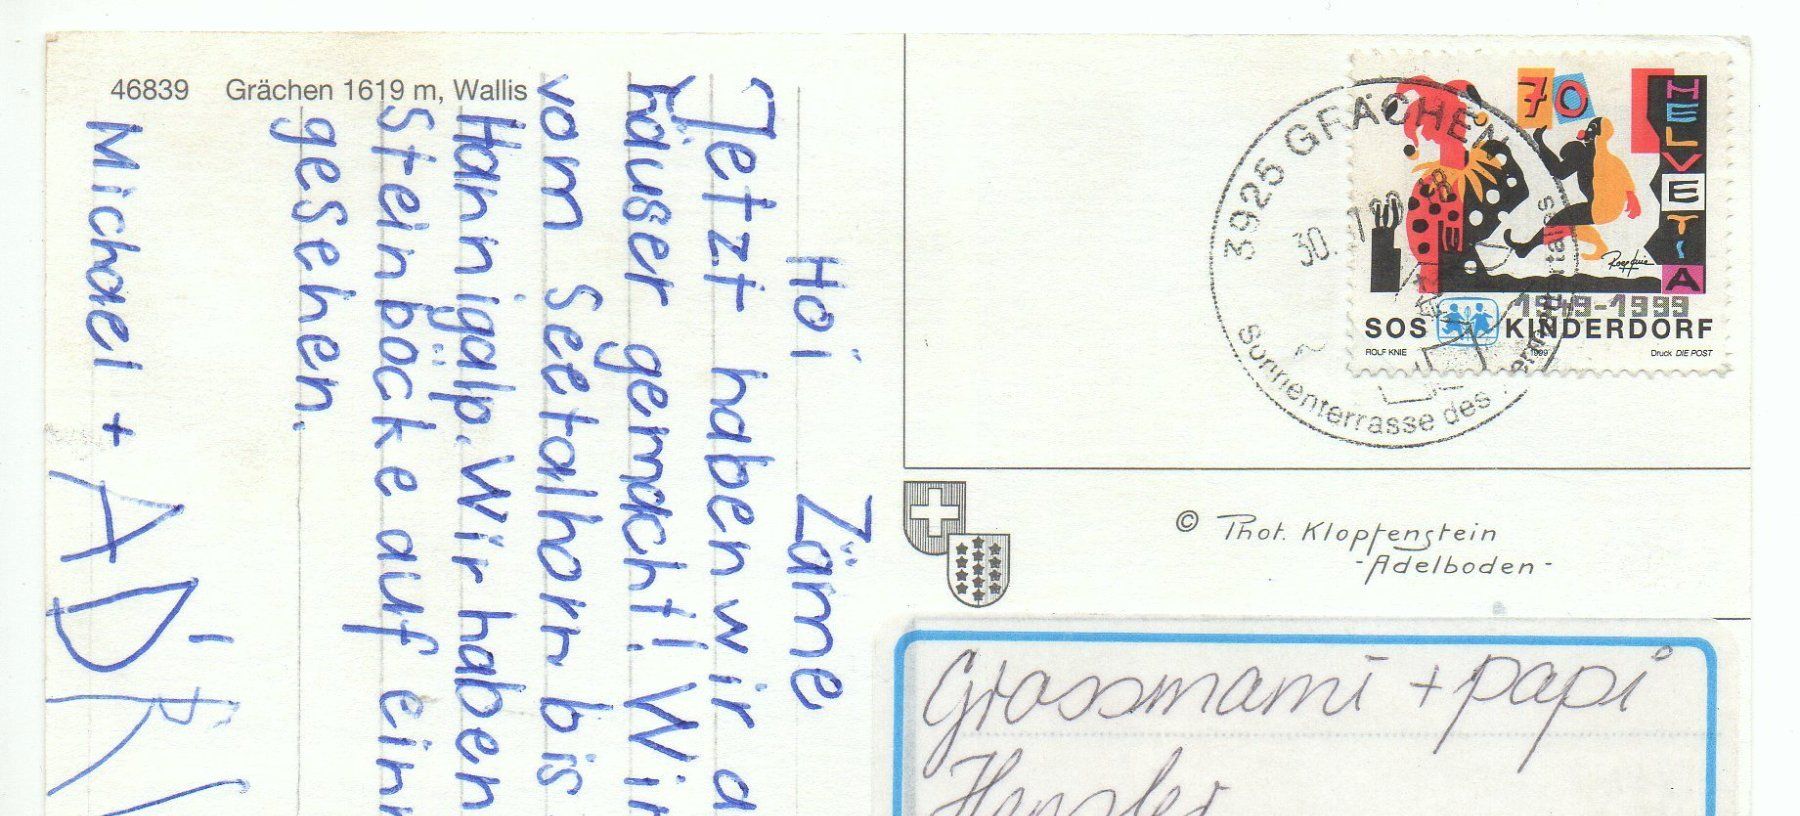 46839 Grächen 1619 m, Wallis
Hoi Zäme
Jetzt haben wir
häuser gemacht! Wir
vom Seetalhorn bis
Hannigalp. Wir haben
Steinböcke auf
gesehen.
Michael +
3925 GRÄCHEN
30.
Sonnenterrasse des
70
HELVETIA
1949-1999
SOS KINDERDORF
ROLF KNIE 1999 Druck DIE POST
© Phot. Klopfenstein
-Adelboden-
Grossmami + papi